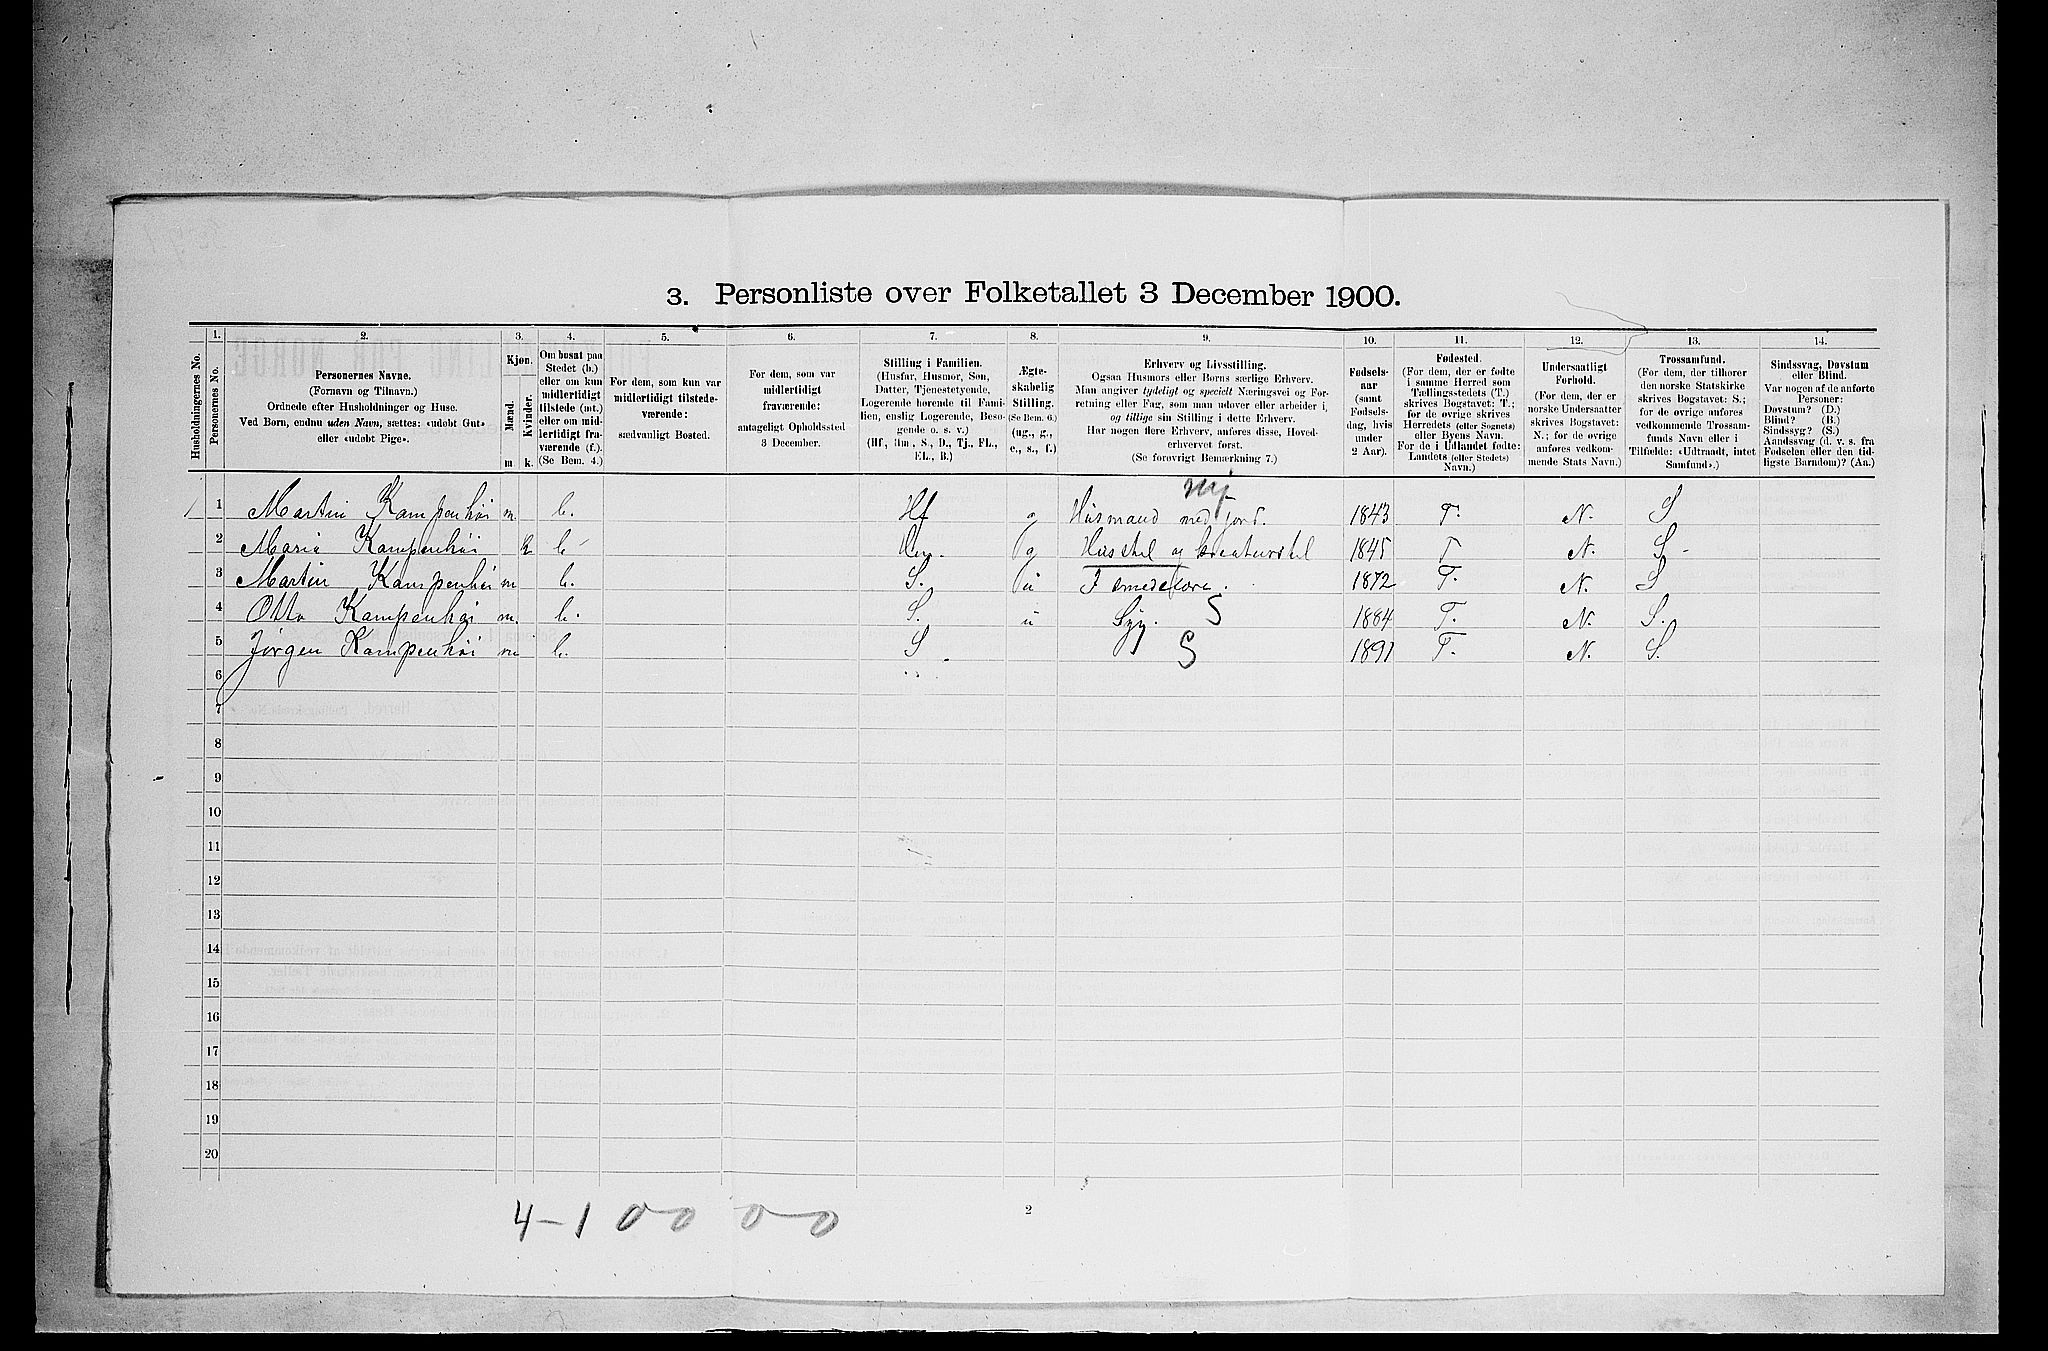 3. Personliste over Folketallet 3 December 1900.
1. 2. 3. 4. 5. 6. 7. 8. 9. 10. 11. 12. 13. 14.
Husholdningernes No.
Personernes No.
Personernes Navne.
(Fornavn og Tilnavn.)
Ordnede efter Husholdninger og Huse.
Ved Børn, endnu uden Navn, sættes: «udøbt Gut»
eller «udøbt Pige».
Kjøn.
Mænd.
Kvinder.
m. k.
Om bosat paa
Stedet (b.)
eller om kun
midlertidigt
tilstede (mt.)
eller om mid-
lertidigt fra-
værende (f.).
(Se Bem. 4.)
For dem, som kun var
midlertidigt tilstede-
værende:
sædvanligt Bosted.
For dem, som var
midlertidigt
fraværende:
antageligt Opholdssted
3 December.
Stilling i Familien.
(Husfar, Husmor, Søn,
Datter, Tjenestetyende,
Logerende hørende til Fami-
lien, enslig Logerende, Besø-
gende o. s. v.)
(Hf, Hm, S., D., Tj., FL.,
EL., B.)
Ægte-
skabelig
Stilling.
(Se Bem. 6.)
(ug., g.,
e., s., f.)
Erhverv og Livsstilling.
Ogsaa Husmors eller Børns særlige Erhverv.
Man angiver tydeligt og specielt Næringsvei og For-
retning eller Fag, som man udøver eller arbeider i,
og tillige sin Stilling i dette Erhverv.
Har nogen flere Erhverv, anføres disse, Hoved-
erhvervet først.
(Se forøvrigt Bemærkning 7.)
Fødsels-
aar
(samt
Fødsels-
dag, hvis
under
2 Aar).
Fødested.
(For dem, der er fødte
i samme Herred som
Tællingsstedets (T.)
skrives Bogstavet: T.;
for de øvrige skrives
Herredets (eller Sognets)
eller Byens Navn.
For de i Udlandet fødte:
Landets (eller Stedets)
Navn.)
Undersaatligt
Forhold.
(For dem, der er
norske Undersaatter
skrives Bogstavet:
N.; for de øvrige
anføres vedkom-
mende Stats Navn.)
Trossamfund.
(For dem, der tilhører
den norske Statskirke
skrives Bogstavet: S.;
for de øvrige anføres
vedkommende Trossam-
funds Navn eller i
Tilfælde: «Udtraadt, intet
Samfund».)
Sindssvag, Døvstum
eller Blind.
Var nogen af de anførte
Personer:
Døvstum? (D.)
Blind? (B.)
Sindssyg? (S.)
Aandssvag (d. v. s. fra
Fødselen eller den tid-
ligste Barndom)? (Aa.)
1 1 Martin Kampenhøi m. b. Hf g Husmand med jord. 1843 T. N. S
2 Maria Kampenhøi k b Hm. g Husstel og kreaturstel 1845 T N. S
3 Martin Kampenhøi m b. S. u 1872 T. N. S
4 Otto Kampenhøi m. b. S. u Syg. S 1884 T. N. S.
5 Jørgen Kampenhøi m b. S S 1891 T. N. S.
6
7
8
9
10
11
12
13
14
15
16
17
18
19
20
4-1 00 00
2